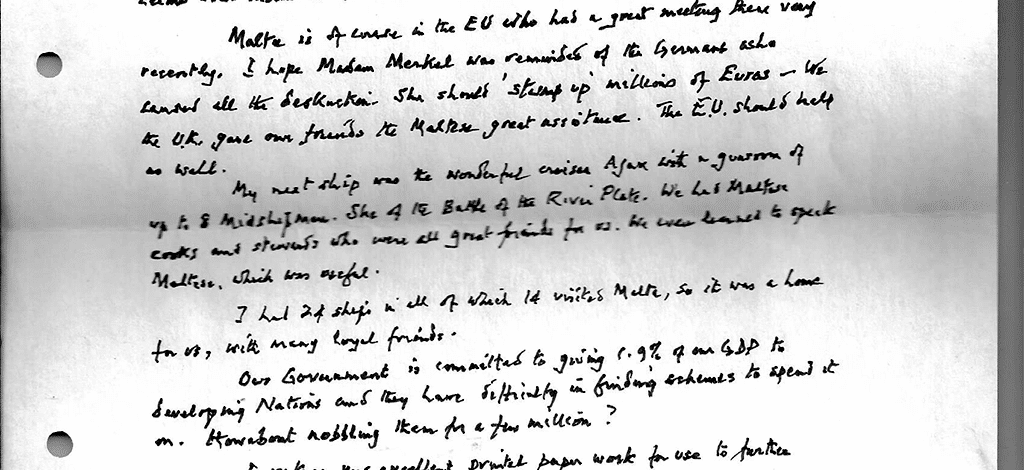 Malta is of course in the EU who had a great meeting there very
recently. I hope Madam Merkel was reminded of the Germans who
caused all the destruction. She should 'stump up' millions of Euros – We
the U.K. gave our friends the Maltese great assistance. The E.U. should help
as well.
My next ship was the wonderful cruiser Ajax with a gunroom of
up to 8 Midshipmen. She of the Battle of the River Plate. We had Maltese
cooks and stewards who were all great friends for us. We even learned to speak
Maltese, which was useful.
I had 24 ships in all of which 14 visited Malta, so it was a home
for us, with many loyal friends.
Our Government is committed to giving 0.9% of our GDP to
developing Nations and they have difficulty in finding schemes to spend it
on. How about nobbling them for a few million?
excellent printed paper work for use to further